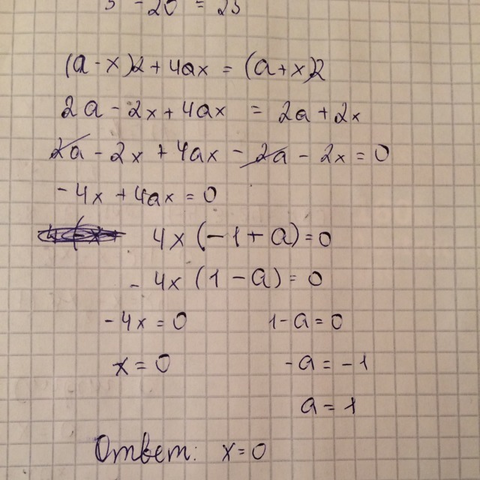 - 20 = 25
(a - x)2 + 4ax = (a + x)2
2a - 2x + 4ax = 2a + 2x
2a - 2x + 4ax - 2a - 2x = 0
- 4x + 4ax = 0
4x (-1 + a) = 0
- 4x (1 - a) = 0
- 4x = 0 1 - a = 0
x = 0 - a = -1
a = 1
Ответ: x = 0